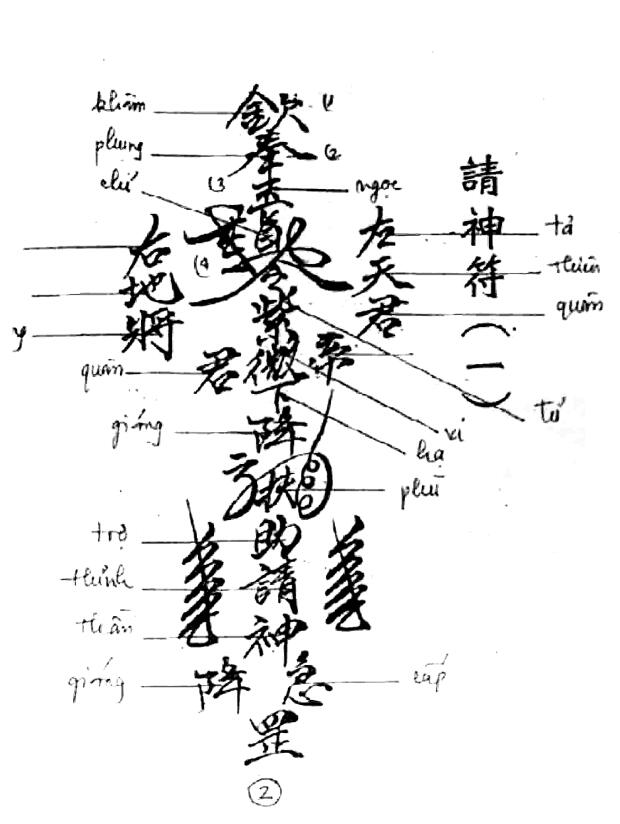 請神符(一)
khâm
欽
(1
phụng
奉
(2
(3
玉
ngọc
chỉ
(4
左天君
tả
thiên
quân
右地將
y
紫微下降扶助請神
tử
vi
quân
君
率
hạ
giáng
phù
trợ
thỉnh
thần
giáng
降
急
cấp
罡
2